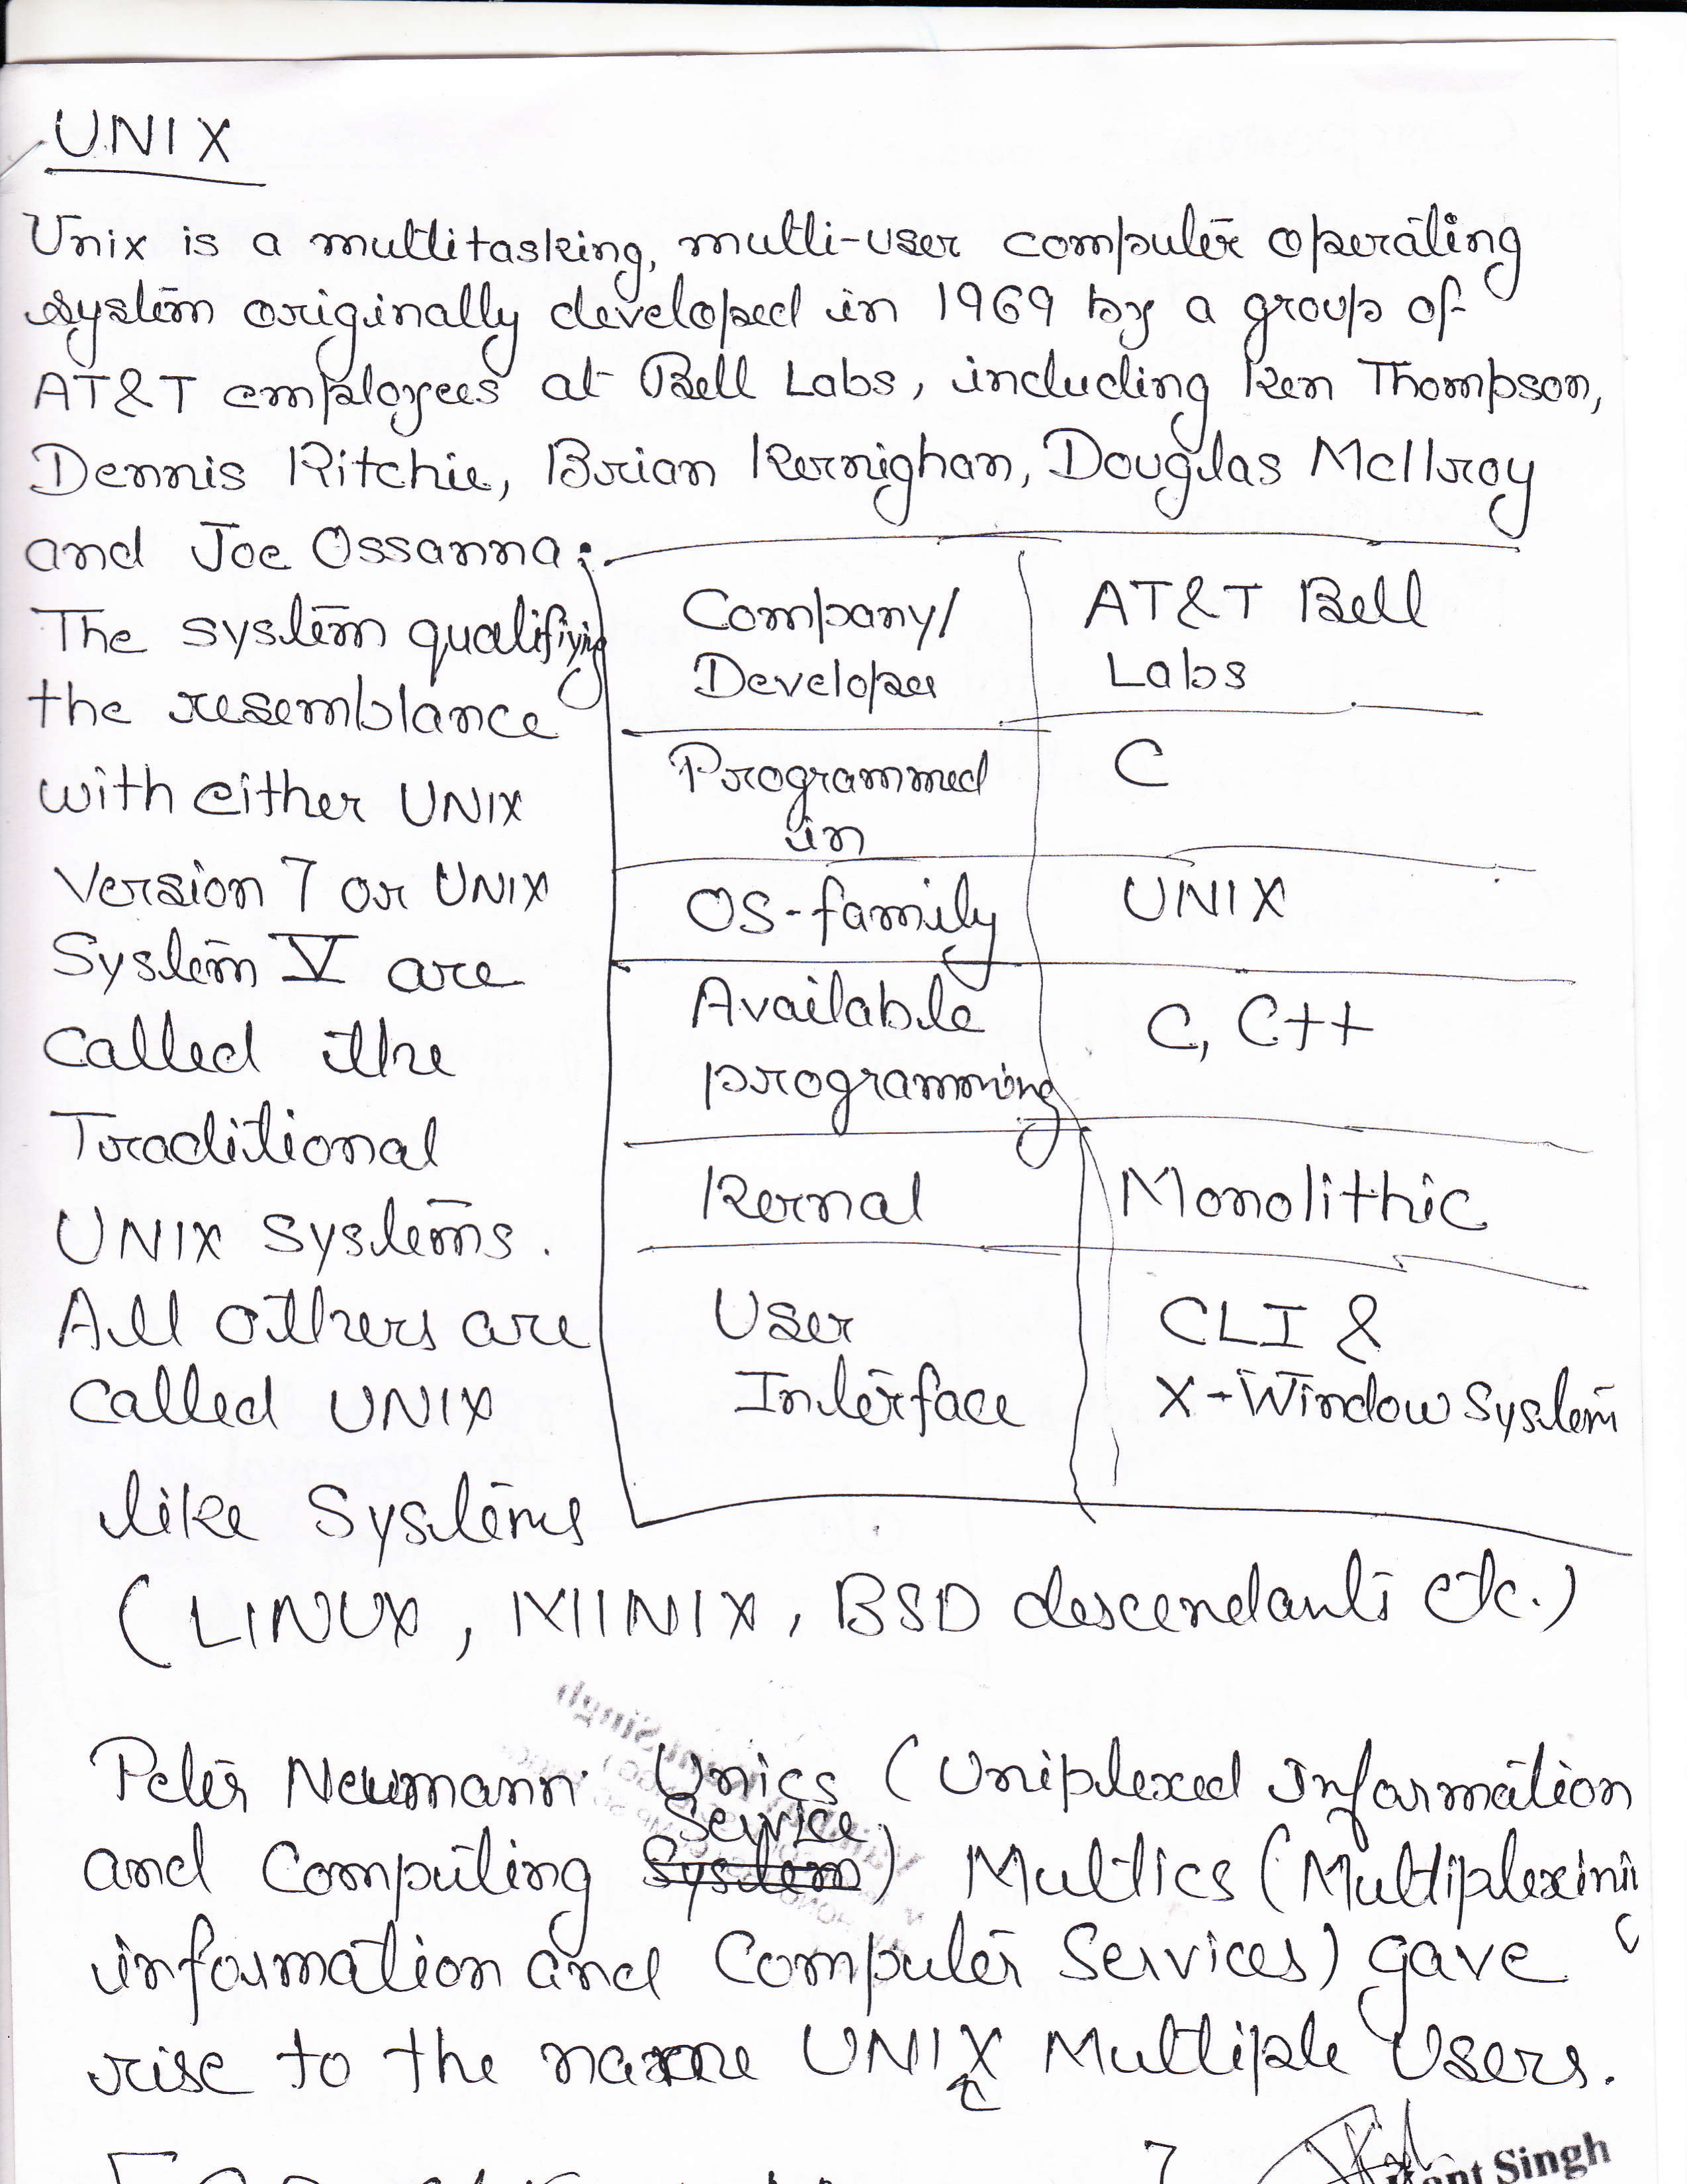 UNIX
Unix is a multitasking, multi-user computer operating
system originally developed in 1969 by a group of
AT&T employees at Bell Labs, including Ken Thompson,
Dennis Ritchie, Brian Kernighan, Douglas McIlroy
and Joe Ossanna.
The system qualifiying
the resemblance
with either UNIX
Version 7 or UNIX
System V are
called the
Traditional
UNIX systems.
All others are
called UNIX
like Systems
(LINUX, MINIX, BSD descendants etc.)
Company/ AT&T Bell
Developer Labs
Programmed C
in
OS-family UNIX
Available C, C++
programming
Kernal Monolithic
User CLI &
Interface X-Window System
Peter Neumann Unics (Uniplexed Information
Service
and Computing System) Multics (Multiplexing
information and Computer Services) gave
rise to the name UNIX Multiple Users.
Singh